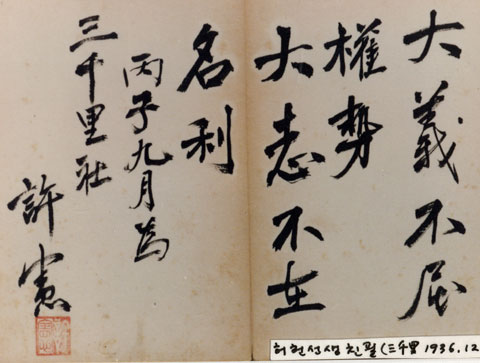 大義不屈
權勢
大志不在
名利
丙子九月為
三千里社
許憲
허헌선생친필 (三千里 1936.12